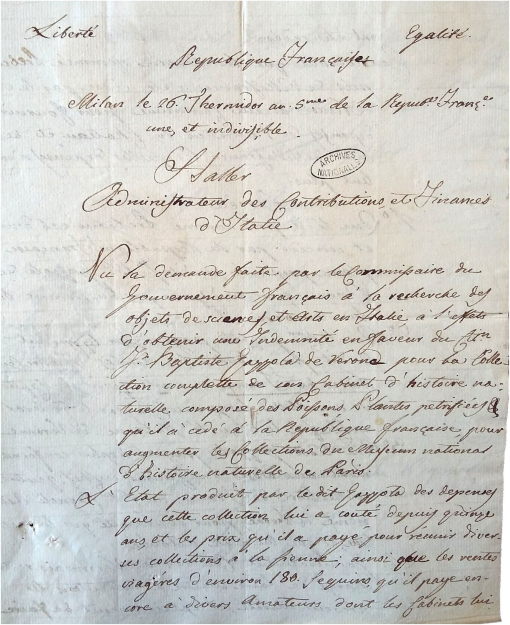 Liberté Egalité.
Republique Française
Milan le 26. Thermidor an 5.me de la Repub.e Franç.e
une, et indivisible.
Haller
ARCHIVES NATIONALES
Administrateur des Contributions et Finances
d'Italie
Vu la demande faite par le Commissaire du
Gouvernement français à la recherche des
objets de sciences et Arts en Italie à l'effet
d'obtenir une Indemnité en faveur du Cten
Jn. Baptiste Gazzola de Verone pour sa Colle-
ction complette de son Cabinet d'histoire na-
turelle composé des Poissons Plantes petrifiées
qu'il a cédé à la Republique française pour
augmenter les Collections du Museum national
d'histoire naturelle de Paris:
& Etat produit par le dit Gazzola des depenses
que cette collection lui a couté depuis quinze
ans, et les prix qu'il a payé pour reunir diver-
ses collections a la sienne; ainsi que les rentes
viagéres d'environ 180. Sequins qu'il paye en-
core à divers Amateurs dont les Cabinets lui